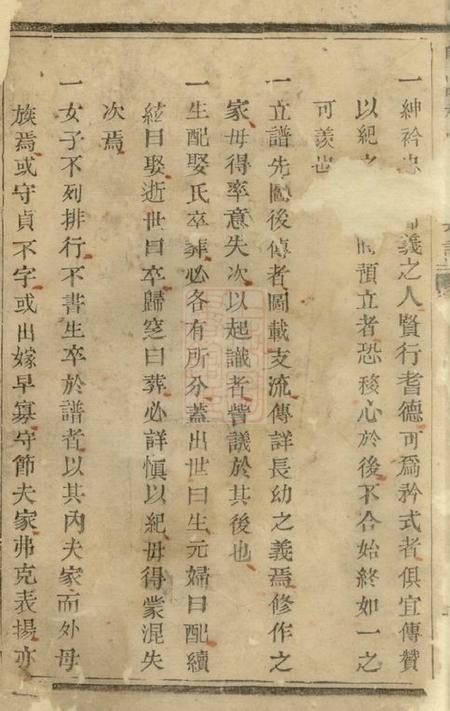 一紳衿忠 義之人賢行耆德可爲矜式者俱宜傳贊
以紀之 預立者恐稜心於後不合始終如一之
可羨也
一立譜先圖後傳者圖載支流傳詳長幼之義焉修作之
家毋得率意失次以起識者訾議於其後也
一生配娶氏卒葬必各有所分蓋出世曰生元婦曰配續
絃曰娶逝世曰卒歸窆曰葬必詳愼以紀毋得蒙混失
次焉
一女子不列排行不書生卒於譜者以其內夫家而外母
族焉或守貞不字或出嫁早寡守節夫家弗克表揚亦